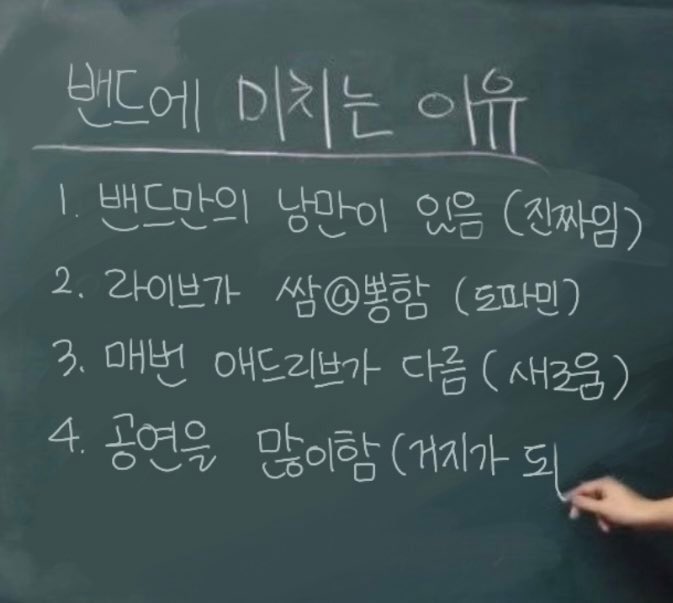 밴드에 미치는 이유
1. 밴드만의 낭만이 있음 (진짜임)
2. 라이브가 쌈@뽕함 (도파민)
3. 매번 애드리브가 다름 (새로움)
4. 공연을 많이함 (거지가 되